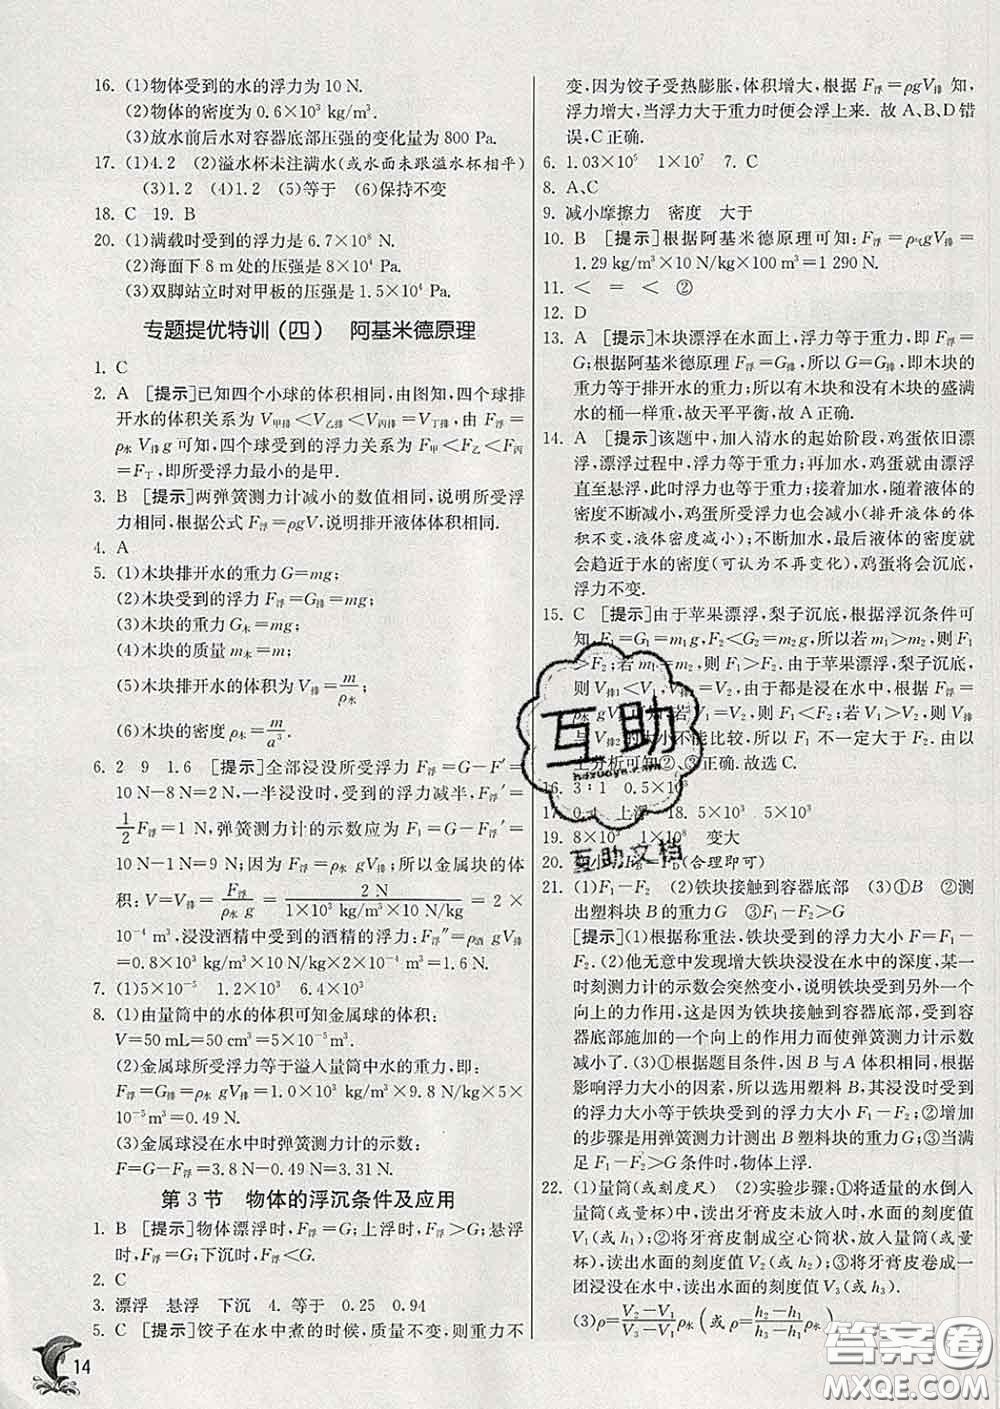 16. (1)物体受到的水的浮力为 10 N.
(2)物体的密度为 0.6×10³ kg/m³.
(3)放水前后水对容器底部压强的变化量为 800 Pa.
17. (1)4.2 (2)溢水杯未注满水(或水面未跟溢水杯相平)
(3)1.2 (4)1.2 (5)等于 (6)保持不变
18. C 19. B
20. (1)满载时受到的浮力是 6.7×10⁸ N.
(2)海面下 8 m 处的压强是 8×10⁴ Pa.
(3)双脚站立时对甲板的压强是 1.5×10⁴ Pa.
专题提优特训(四) 阿基米德原理
1. C
2. A [提示]已知四个小球的体积相同,由图知,四个球排
开水的体积关系为 V甲排<V乙排<V丙排=V丁排,由 F浮=
ρ水 V排g 可知,四个球受到的浮力关系为 F甲<F乙<F丙
=F丁,即所受浮力最小的是甲.
3. B [提示]两弹簧测力计减小的数值相同,说明所受浮
力相同.根据公式 F浮=ρgV,说明排开液体体积相同.
4. A
5. (1)木块排开水的重力 G=mg;
(2)木块受到的浮力 F浮=G排=mg;
(3)木块的重力 G木=mg;
(4)木块的质量 m木=m;
(5)木块排开水的体积为 V排=m/ρ水
(6)木块的密度 ρ木=m/a³.
6. 2 9 1.6 [提示]全部浸没所受浮力 F浮=G-F′=
10 N-8 N=2 N,一半浸没时,受到的浮力减半,F浮′=
1/2 F浮=1 N,弹簧测力计的示数应为 F₁=G-F浮′=
10 N-1 N=9 N;因为 F浮=ρ水 gV排;所以金属块的体
积:V=F浮/ρ水 g=2 N/1×10³ kg/m³×10 N/kg=2×
10⁻⁴ m³,浸没酒精中受到的酒精的浮力:F浮″=ρ酒 gV排
=0.8×10³ kg/m³×10 N/kg×2×10⁻⁴ m³=1.6 N.
7. (1)5×10⁻⁵ 1.2×10³ 6.4×10³
8. (1)由量筒中的水的体积可知金属球的体积:
V=50 mL=50 cm³=5×10⁻⁵ m³.
(2)金属球所受浮力等于溢入量筒中水的重力,即:
F浮=G排=ρ水 gV排=1.0×10³ kg/m³×9.8 N/kg×5×
10⁻⁵ m³=0.49 N.
(3)金属球浸在水中时弹簧测力计的示数:
F=G-F浮=3.8 N-0.49 N=3.31 N.
第 3 节 物体的浮沉条件及应用
1. B [提示]物体漂浮时,F浮=G;上浮时,F浮>G;悬浮
时,F浮=G;下沉时,F浮<G.
2. C
3. 漂浮 悬浮 下沉 4. 等于 0.25 0.94
5. C [提示]饺子在水中煮的时候,质量不变,则重力不
变,因为饺子受热膨胀,体积增大,根据 F浮=ρgV排 知,
浮力增大,当浮力大于重力时便会浮上来. 故 A、B、D 错
误,C 正确.
6. 1.03×10⁵ 1×10⁷ 7. C
8. A、C
9. 减小摩擦力 密度 大于
10. B [提示]根据阿基米德原理可知:F浮=ρ气gV排=
1.29 kg/m³×10 N/kg×100 m³=1 290 N.
11. < = < ②
12. D
13. A [提示]木块漂浮在水面上,浮力等于重力,即 F浮=
G;根据阿基米德原理 F浮=G排,所以 G=G排,即木块的
重力等于排开水的重力;所以有木块和没有木块的盛满
水的桶一样重,故天平平衡,故 A 正确.
14. A [提示]该题中,加入清水的起始阶段,鸡蛋依旧漂
浮,漂浮过程中,浮力等于重力;再加水,鸡蛋就由漂浮
直至悬浮,此时浮力也等于重力;接着加水,随着液体的
密度不断减小,鸡蛋所受浮力也不断减小(排开液体的体
积不变,液体密度减小);不断加水,最后液体的密度就
会趋近于水的密度(可认为不再变化),鸡蛋将会沉底,
浮力不变.
15. C [提示]由于苹果漂浮,梨子沉底,根据浮沉条件可
知,F₁=G₁=m₁g,F₂<G₂=m₂g,所以若 m₁>m₂,则 F₁
>F₂;若 m₁=m₂,则 F₁>F₂.由于苹果漂浮,梨子沉底,
则 V排1<V₁,V排2=V₂,由于都是浸在水中,根据 F浮=
ρ水 gV排可知,若 V₁=V₂,则 V排1<V排2,则 F₁<F₂;若
V₁>V₂,则 V排1与 V排2的大小不能比较,所以 F₁ 不一定大于 F₂. 由以
上分析可知②、③正确.故选 C.
16. 3∶1 0.5×10³
17. 上浮 18. 5×10³ 5×10³
19. 8×10³ 1×10⁸ 变大
20. (合理即可)
21. (1)F₁-F₂ (2)铁块接触到容器底部 (3)①B ②测
出塑料块 B 的重力G ③F₁-F₂>G
[提示](1)根据称重法,铁块受到的浮力大小 F=F₁-
F₂. (2)他无意中发现增大铁块浸没在水中的深度,某一
时刻测力计的示数会突然变小,说明受到了另外一个
向上的力的作用,这是因为铁块接触到容器底部,受到容
器底部施加的一个向上的作用力而使弹簧测力计示数
减小了. (3)①根据题目条件,因 B 与 A 体积相同,根据
影响浮力大小的因素,所以选用塑料 B,其浸没时受到
的浮力大小等于铁块受到的浮力大小 F₁-F₂;②增加
的步骤是用弹簧测力计测出 B 塑料块的重力 G;③当满
足 F₁-F₂>G 条件时,物体上浮.
22. (1)量筒(或刻度尺) (2)实验步骤:①将适量的水倒入
量杯中,读出牙膏皮未放入时,水面的刻度值
V₁(或 h₁);②将牙膏皮制成空心筒状,放入量筒(或量
杯),读出水面的刻度值 V₂(或 h₂);③将牙膏皮卷成一
团浸没在水中,读出水面的刻度值 V₃(或 h₃).
(3)ρ=V₂-V₁/V₃-V₁ ρ水(或 ρ=h₂-h₁/h₃-h₁ ρ水)
14
互助
互助文档
答案圈
MXQE.COM